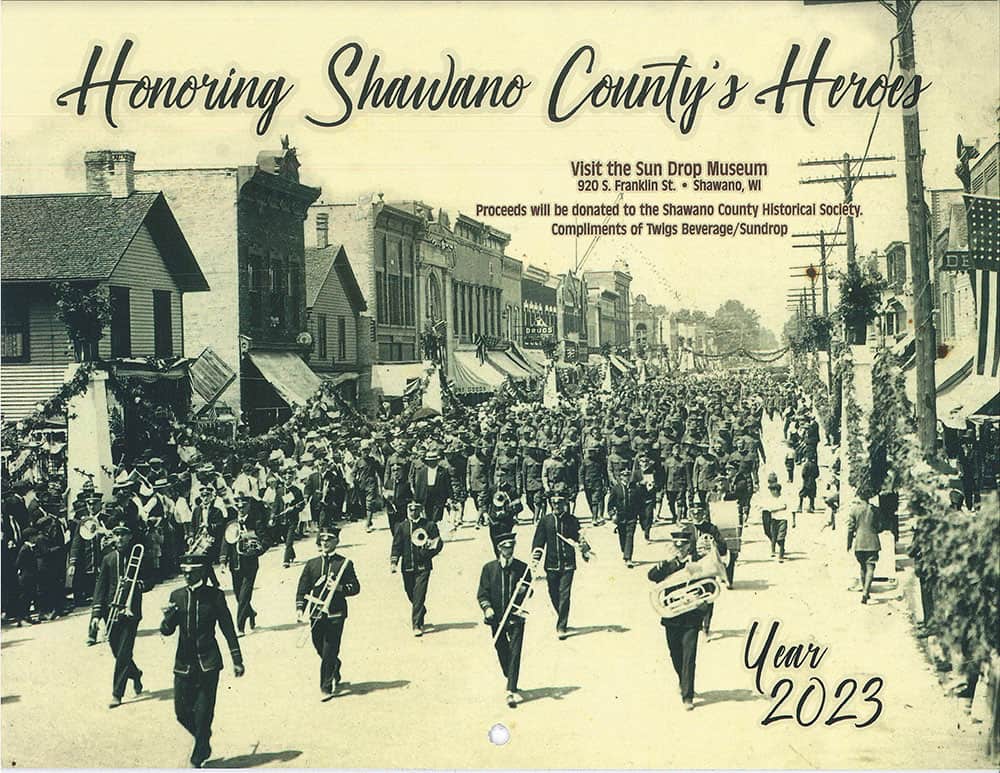 Honoring Shawano County's Heroes
Visit the Sun Drop Museum
920 S. Franklin St. • Shawano, WI
Proceeds will be donated to the Shawano County Historical Society.
Compliments of Twigs Beverage/Sundrop
DRUGS
Year
2023